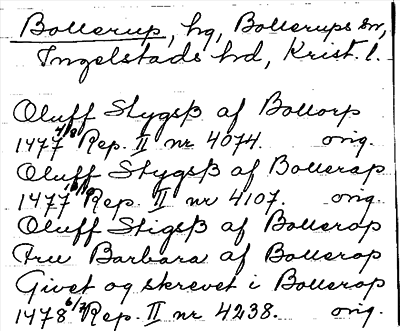 Bollerup, hg, Bollerups sn,
Ingelstads hd, Krist. l.
Oluff Stygsß af Bollorp
1477 7/8 Rep. II nr 4074. orig.
Oluff Stygsß af Bollerap
1477 Rep. II nr 4107. orig.
Oluff Stigsß af Bollerop
Fru Barbara af Bollerop
Givet og skrevet i Bollerop
1478 6/7 Rep. II nr 4238. orig.